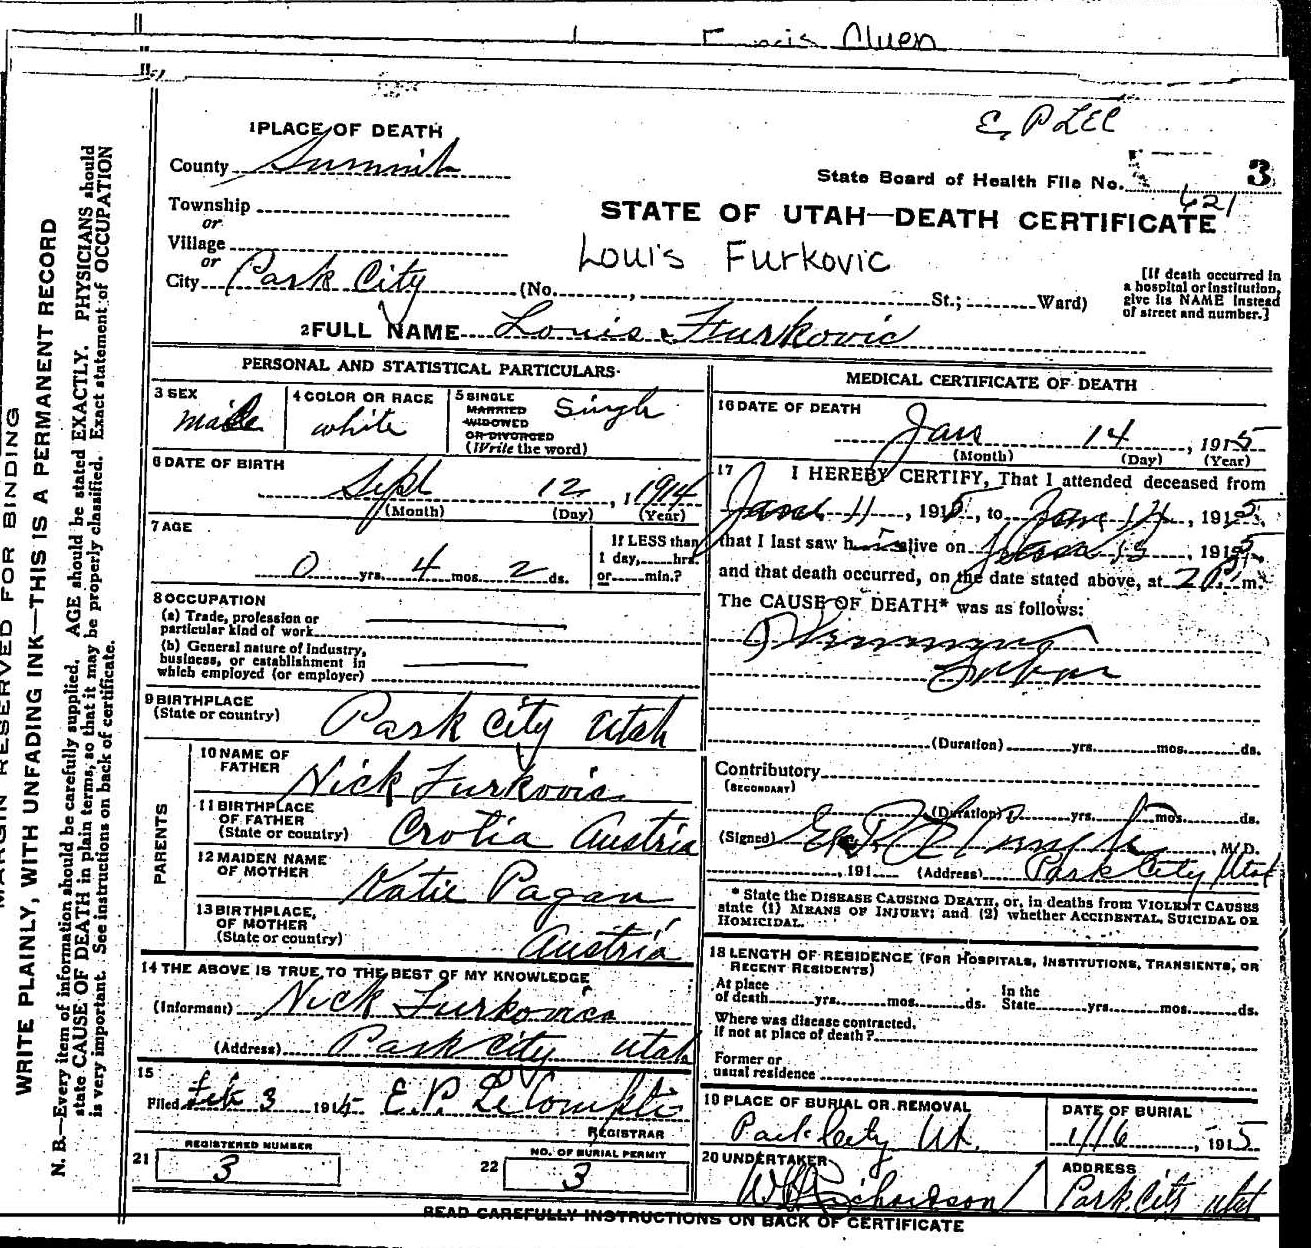 Francis Cluen
E. P LEC
1 PLACE OF DEATH
County Summit
State Board of Health File No. 3
621
Township
or
Village
or
City Park City (No. , St.; Ward)
STATE OF UTAH—DEATH CERTIFICATE
Louis Furkovic
[If death occurred in
a hospital or institution,
give its NAME instead
of street and number.]
2 FULL NAME Louis Furkovic
PERSONAL AND STATISTICAL PARTICULARS
3 SEX
male
4 COLOR OR RACE
white
5 SINGLE
MARRIED
WIDOWED
OR DIVORCED
(Write the word)
Single
6 DATE OF BIRTH
Sept 12, 1914
(Month) (Day) (Year)
7 AGE
0 yrs. 4 mos. 2 ds.
If LESS than
1 day, hrs.
or min.?
8 OCCUPATION
(a) Trade, profession or
particular kind of work
(b) General nature of Industry,
business, or establishment in
which employed (or employer)
9 BIRTHPLACE
(State or country)
Park City Utah
PARENTS
10 NAME OF
FATHER
Nick Furkovic
11 BIRTHPLACE
OF FATHER
(State or country)
Crotia Austria
12 MAIDEN NAME
OF MOTHER
Katie Pagan
13 BIRTHPLACE,
OF MOTHER
(State or country)
Austria
14 THE ABOVE IS TRUE TO THE BEST OF MY KNOWLEDGE
(Informant) Nick Furkovic
(Address) Park City Utah
15
Filed Feb 3 1915 E. P. LeCompte
REGISTRAR
REGISTERED NUMBER
21 3
NO. OF BURIAL PERMIT
22 3
MEDICAL CERTIFICATE OF DEATH
16 DATE OF DEATH
Jan 14, 1915
(Month) (Day) (Year)
17 I HEREBY CERTIFY, That I attended deceased from
Jan 11, 1915, to Jan 14, 1915,
that I last saw him alive on Jan 13, 1915,
and that death occurred, on the date stated above, at 2 P. m.
The CAUSE OF DEATH* was as follows:
(Duration) yrs. mos. ds.
Contributory
(SECONDARY)
(Duration) yrs. mos. ds.
(Signed) , M.D.
, 191 (Address) Park City Utah
* State the DISEASE CAUSING DEATH, or, in deaths from VIOLENT CAUSES
state (1) MEANS OF INJURY; and (2) whether ACCIDENTAL, SUICIDAL OR
HOMICIDAL.
18 LENGTH OF RESIDENCE (FOR HOSPITALS, INSTITUTIONS, TRANSIENTS, OR
RECENT RESIDENTS)
At place
of death yrs. mos. ds.
In the
State yrs. mos. ds.
Where was disease contracted,
If not at place of death?
Former or
usual residence
19 PLACE OF BURIAL OR REMOVAL
Park City Ut.
DATE OF BURIAL
1/16, 1915
20 UNDERTAKER
W Richardson
ADDRESS
Park City Utah
READ CAREFULLY INSTRUCTIONS ON BACK OF CERTIFICATE
MARGIN RESERVED FOR BINDING
WRITE PLAINLY, WITH UNFADING INK—THIS IS A PERMANENT RECORD
N. B.—Every item of information should be carefully supplied. AGE should be stated EXACTLY. PHYSICIANS should
state CAUSE OF DEATH in plain terms, so that it may be properly classified. Exact statement of OCCUPATION
is very important. See instructions on back of certificate.